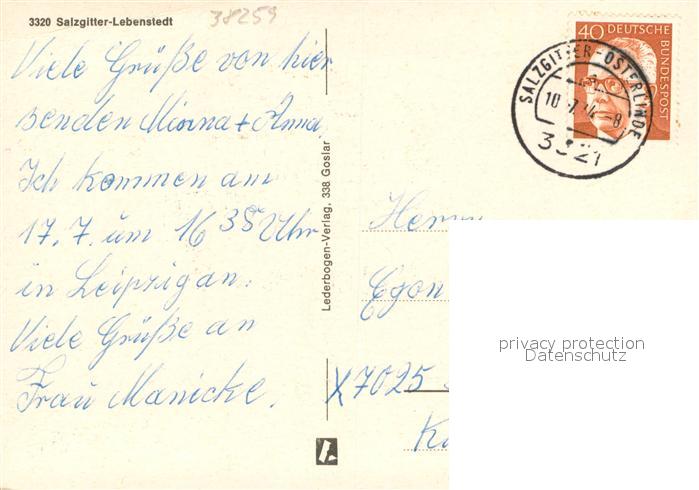 3320 Salzgitter-Lebenstedt
38259
Viele Grüße von hier
senden Minna + Anna,
Ich kommen am
17.7. um 16 35 Uhr
in Leipzig an.
Viele Grüße an
Frau Manicke.
Lederbogen-Verlag, 338 Goslar
40 DEUTSCHE BUNDESPOST
SALZGITTER-OSTERLINDE
10.7.74-8
3321
Herrn
Egon
X7025
privacy protection
Datenschutz